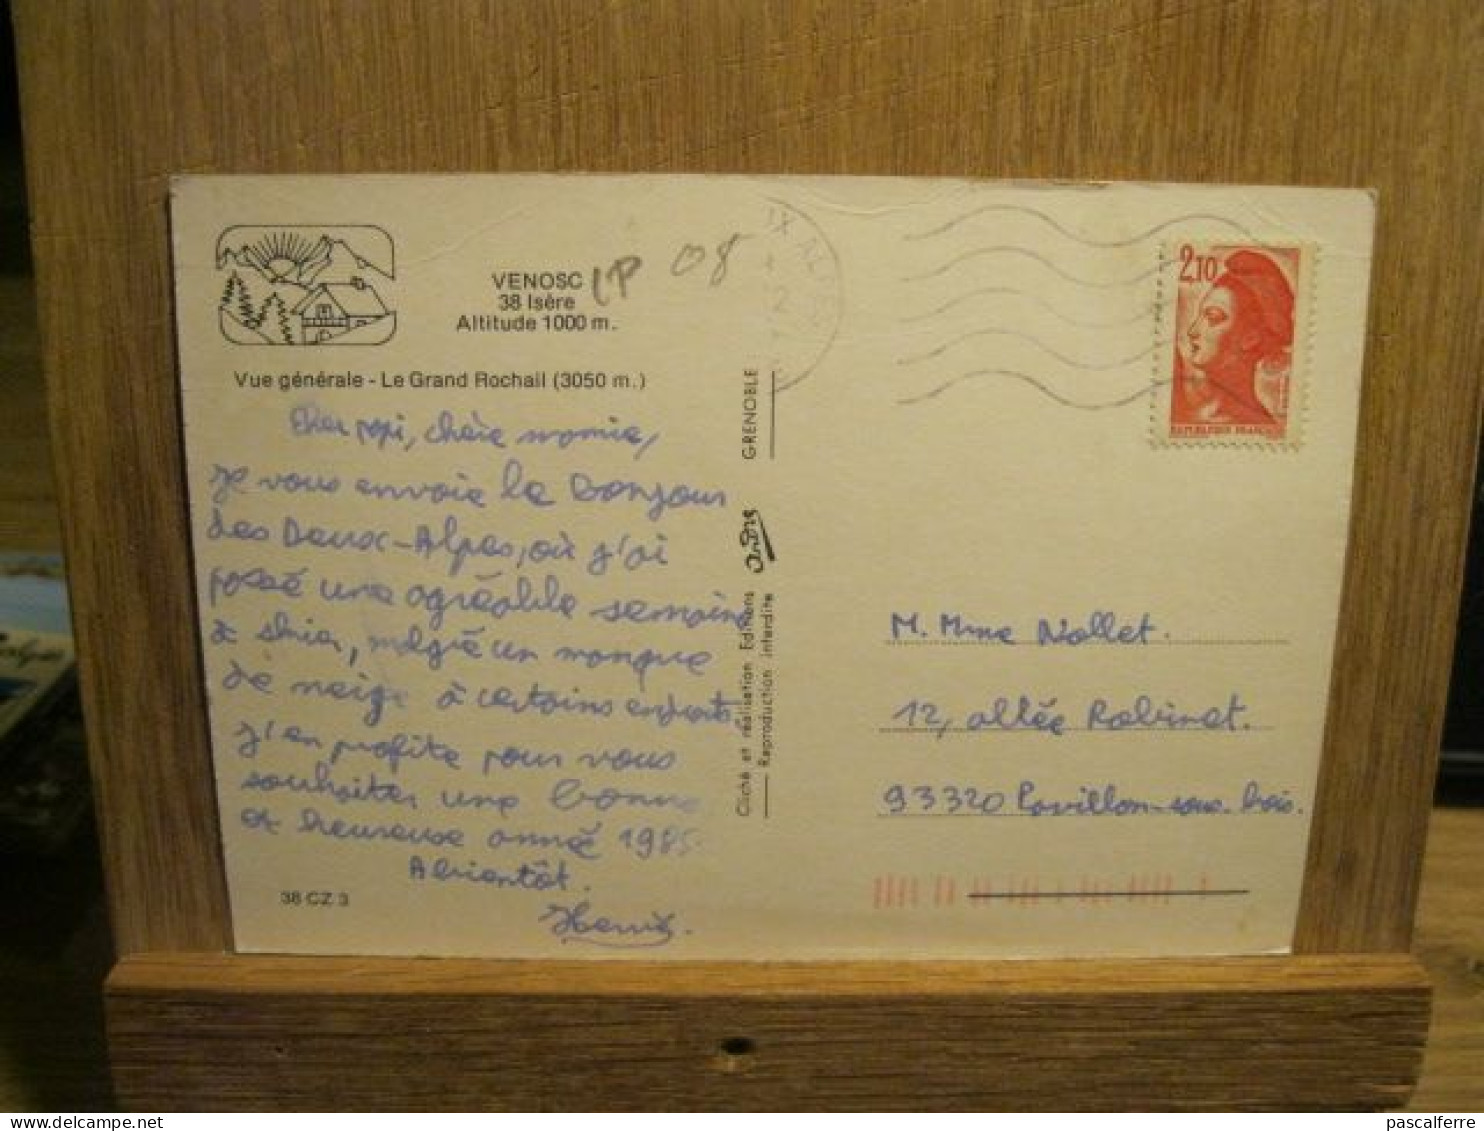 VENOSC
38 Isère
Altitude 1000 m.
LP 08
Vue générale - Le Grand Rochail (3050 m.)
Cher papi, chère mamie,
je vous envoie le bonjour
des Deux-Alpes, où j'ai
passé une agréable semaine
à skier, malgré un manque
de neige à certains endroits
j'en profite pour vous
souhaiter une bonne
et heureuse année 1985
A bientôt.
38 CZ 3
GRENOBLE
André
Cliché et réalisation Editions
Reproduction interdite
2,10
REPUBLIQUE FRANCAISE
M. Mme Nollet.
12, allée Robinet.
93320 Pavillon-sous-bois.
pascalferre